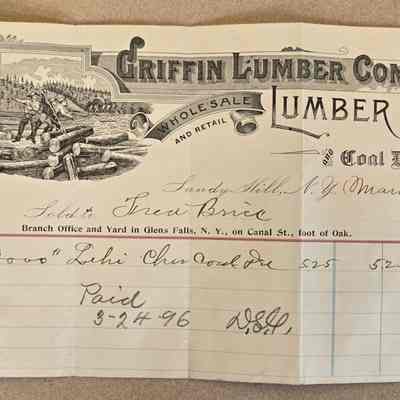 GRIFFIN LUMBER CON
WHOLESALE AND RETAIL
LUMBER
AND Coal D
Sandy Hill, N.Y. Mar
Sold to Fred Brice
Branch Office and Yard in Glens Falls, N. Y., on Canal St., foot of Oak.
000" Lehi Coal 5.25 52
Paid
3-24-96